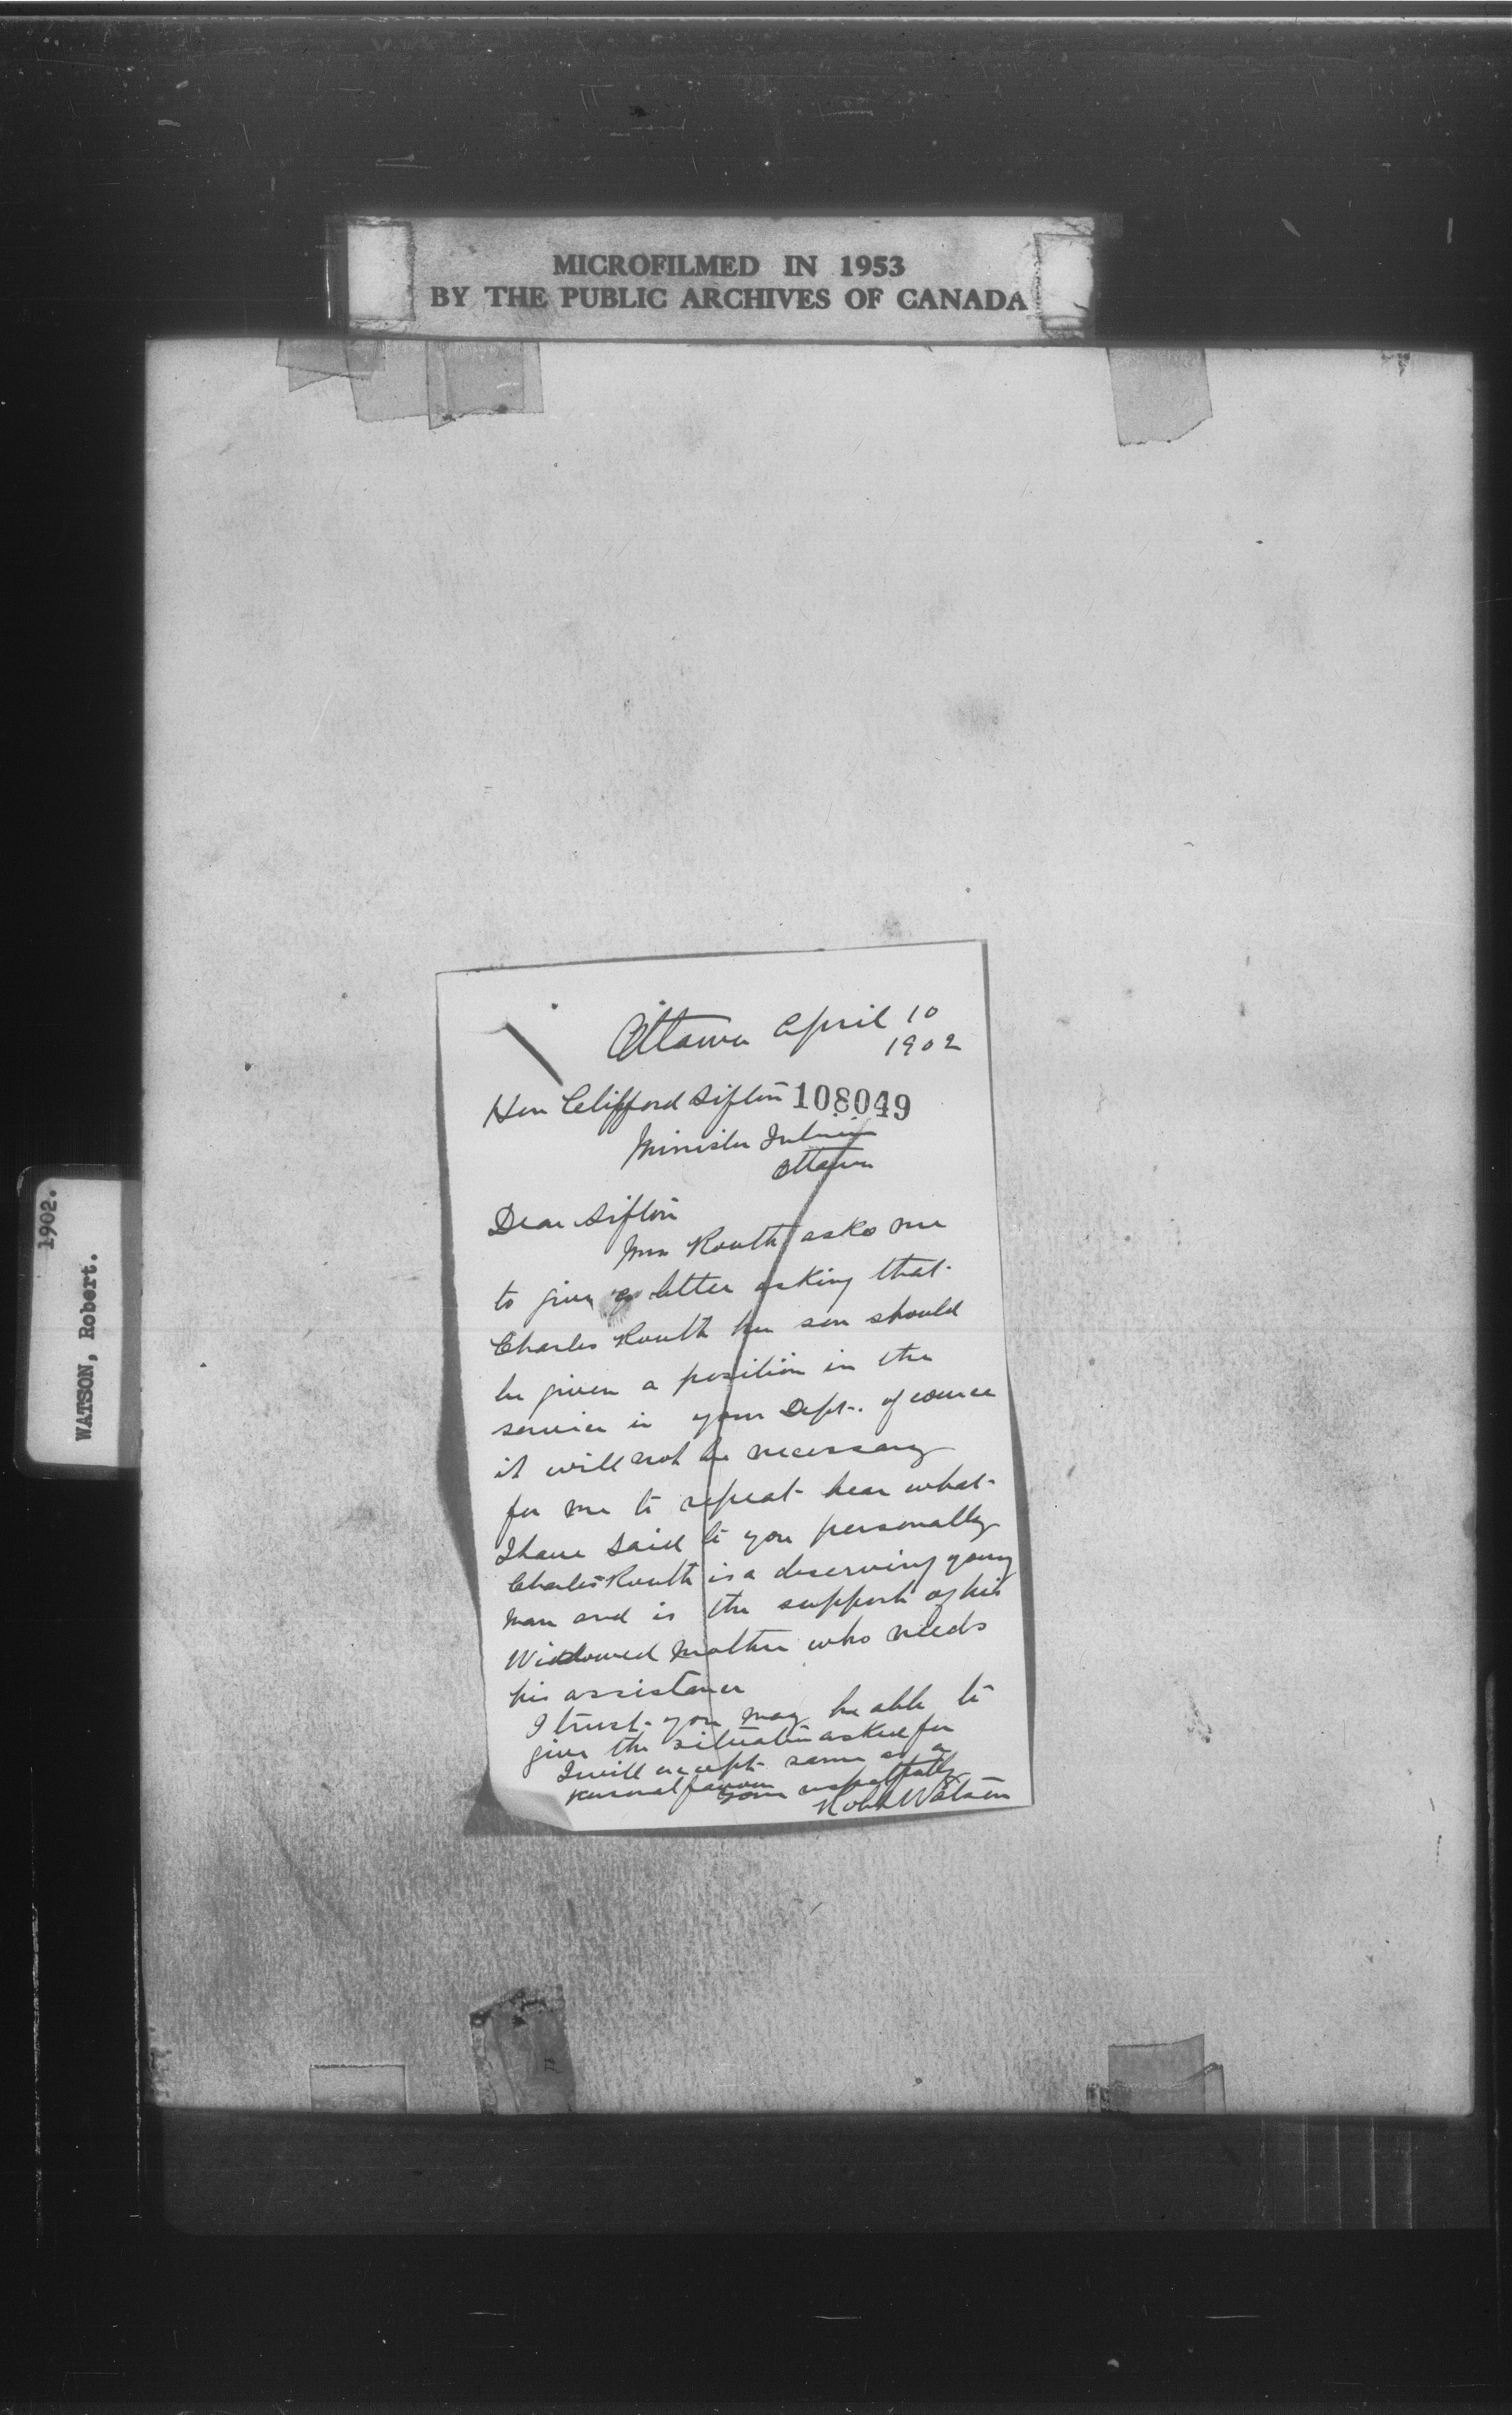 MICROFILMED IN 1953
BY THE PUBLIC ARCHIVES OF CANADA
1902.
WATSON, Robert.
Ottawa April 10
1902
Hon Clifford Sifton 108049
Minister Interior
Ottawa
Dear Sifton
Mrs Routh asks me
to give a letter asking that
Charles Routh her son should
be given a position in the
service in your Dept. of cource
it will not be necessary
for me to repeat hear what
I have said to you personally
Charles Routh is a deserving young
man and is the support of his
Widdowed mother who needs
his assistance
I trust you may be able to
give the situation asked for
I will accept same as a
personal favour
yours respectfully
Robt Watson